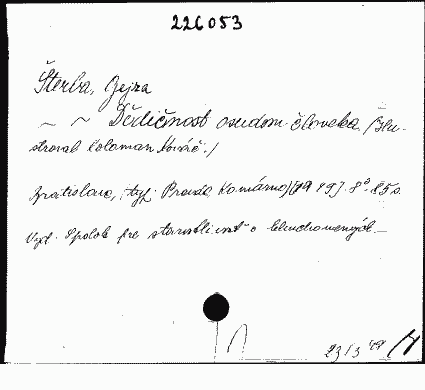 226053
Šterba, Gejza
~ ~ Dedičnosť osudom človeka. /Ilu-
stroval Koloman Kováč./
Bratislava, typ. Pravda, Komárno, 1949. 8°. 85 s.
Vyd. Spolok pre starostlivosť o hluchonemých.—
23/3 49